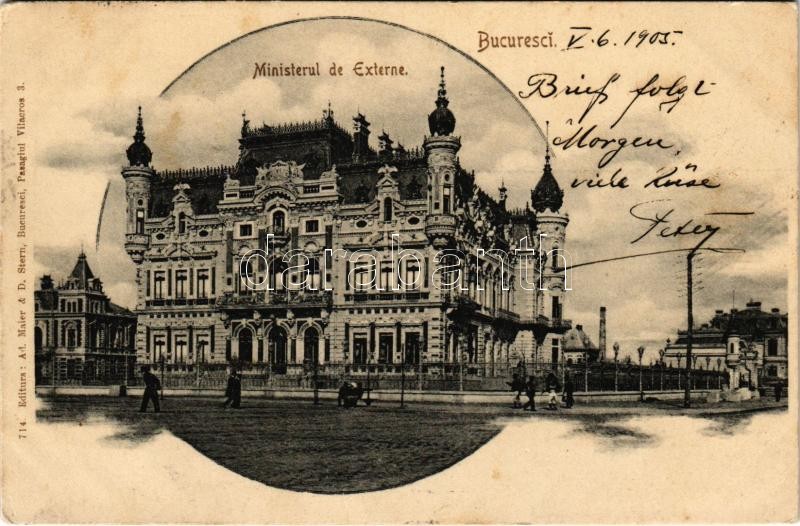 Bucuresci. V. 6. 1905.
Ministerul de Externe.
Brief folgt
Morgen,
viele Küse
Peter
darabanth
714. Editura: Ad. Maier & D. Stern, Bucuresci, Pasagiul Vilacros 3.